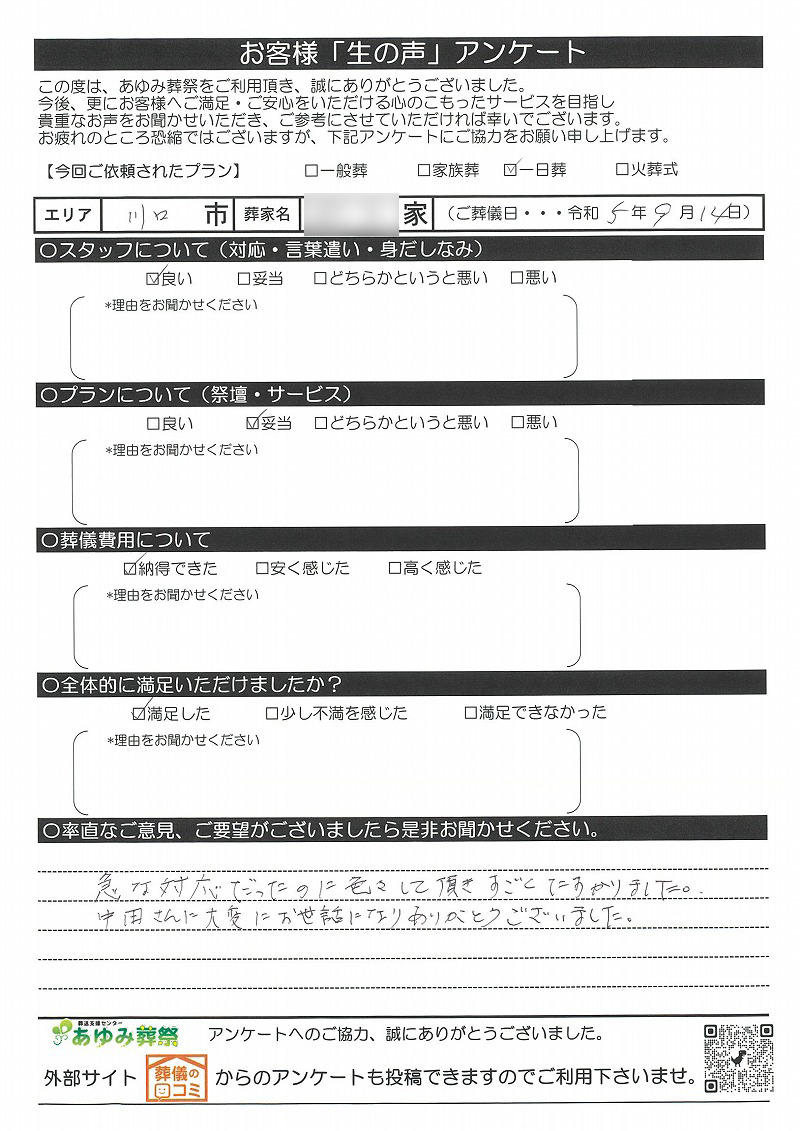 お客様「生の声」アンケート
この度は、あゆみ葬祭をご利用頂き、誠にありがとうございました。
今後、更にお客様へご満足・ご安心をいただける心のこもったサービスを目指し
貴重なお声をお聞かせいただき、ご参考にさせていただければ幸いでございます。
お疲れのところ恐縮ではございますが、下記アンケートにご協力をお願い申し上げます。
【今回ご依頼されたプラン】 □一般葬 □家族葬 ☑一日葬 □火葬式
エリア 川口 市 葬家名 家 (ご葬儀日・・・令和 5年 9月 14日)
○スタッフについて(対応・言葉遣い・身だしなみ)
☑良い □妥当 □どちらかというと悪い □悪い
*理由をお聞かせください
○プランについて(祭壇・サービス)
□良い ☑妥当 □どちらかというと悪い □悪い
*理由をお聞かせください
○葬儀費用について
☑納得できた □安く感じた □高く感じた
*理由をお聞かせください
○全体的に満足いただけましたか?
☑満足した □少し不満を感じた □満足できなかった
*理由をお聞かせください
○率直なご意見、ご要望がございましたら是非お聞かせください。
急な対応だったのに色々して頂きすごくたすかりました。
中田さんに大変にお世話になりありがとうございました。
葬送支援センター
あゆみ葬祭 アンケートへのご協力、誠にありがとうございました。
外部サイト 葬儀の口コミ からのアンケートも投稿できますのでご利用下さいませ。